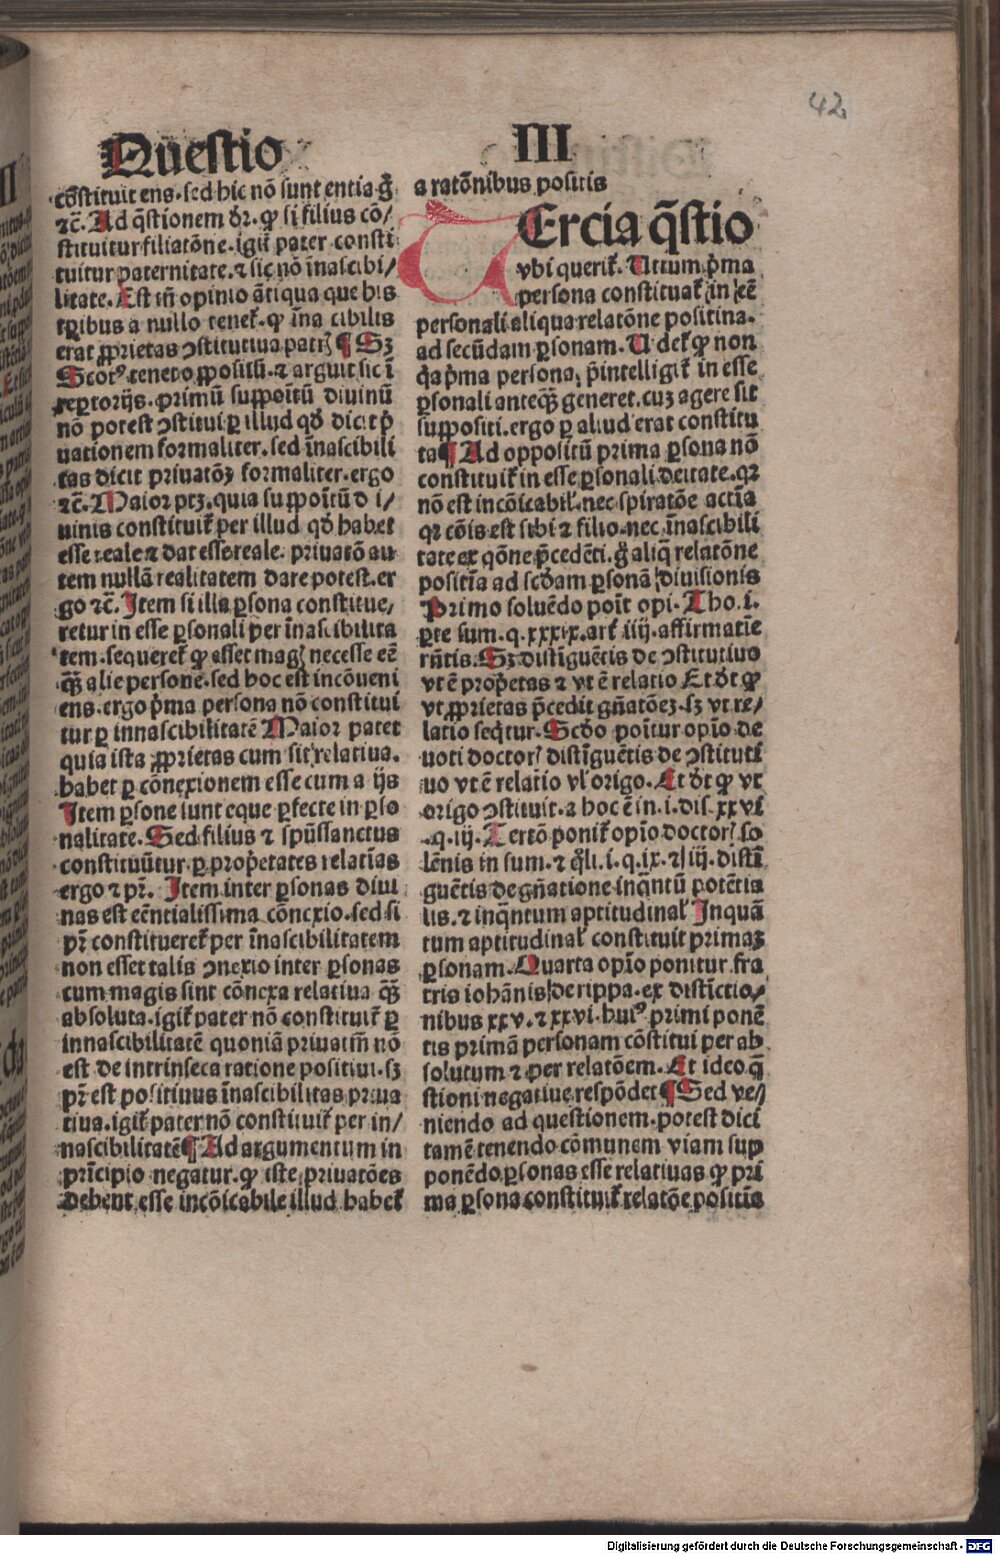 42
Questio III
cōstituit ens. sed hic nō sunt entia gͦ
⁊c̄. Ad q̄stionem dr̄. ꝙ si filius cō/
stituitur filiatōne. igit̄ pater consti
tuitur paternitate. ⁊ sic nō īnascibi/
litate. Est tn̄ opinio ātiqua que his
tribus a nullo tenet̄. ꝙ īna cibilis
erat ꝓprietas ↄstitutiua patrꝭ ¶ Sꝫ
Scotꝰ tenet oꝓpositū. ⁊ arguit sic ī
reꝑtorijs. primū suppoītū diuinū
nō potest ↄstitui ꝑ illud qd̛ dicit p̄
uationem formaliter. sed īnascibili
tas dicit priuatōꝫ formaliter. ergo
⁊c̄. Maior ptꝫ. quia suppoītū d i/
uinis constituit̄ per illud qd̛ habet
esse reale ⁊ dat esse reale. priuatō au
tem nullā realitatem dare potest. er
go ⁊c̄. Item si illa ꝑsona constitue,
retur in esse ꝑsonali per īnascibilita
tem. sequeret̄ ꝙ esset magꝭ necesse eē
qꝫ̄ alie persone. sed hoc est incōueni
ens. ergo p̄ma persona nō constitui
tur ꝑ innascibilitatē Maior patet
quia ista ꝓprietas cum sit relatiua.
habet ꝑ cōnexionem esse cum a ijs
Item ꝑsone sunt eque ꝑfecte in ꝑso
nalitate. Sed filius ⁊ spūssanctus
constituūtur ꝑ prop̄etates relatīas
ergo ⁊ pr̄. Item inter ꝑsonas diui
nas est eēntialissima cōnexio. sed si
pr̄ constitueret̄ per īnascibilitatem
non esset talis ↄnexio inter ꝑsonas
cum magis sint cōnexa relatiua qꝫ̄
absoluta. igit̄ pater nō constituit̄ ꝑ
innascibilitatē quoniā priuatiū nō
est de intrinseca ratione positiui. sꝫ
pr̄ est positiuus īnascibilitas priua
tiua. igit̄ pater nō constituit̄ per in/
nascibilitatē ¶ Ad argumentum in
prīcipio negatur. ꝙ iste priuatōes
debent esse incōicabile illud habet̄
a ratōnibus positis
TErcia q̄stio
vbi querit̄. Utrum p̄ma
persona constituat̄ in eē
personali aliqua relatōne positiua.
ad secūdam ꝑsonam. Uidet̄ ꝙ non
q̄a p̄ma persona p̄intelligit̄ in esse
ꝑsonali anteqꝫ̄ generet. cuꝫ agere sit
suppositi. ergo ꝑ aliud erat constitu
ta ¶ Ad oppositū prima ꝑsona nō
constituit̄ in esse ꝑsonali deitate. qꝛ
nō est incōicabil̄. nec spiratōe actīa
qꝛ cōis est sibi ⁊ filio. nec īnascibili
tate ex qōne p̄cedēti. gͦ aliq̄ relatōne
positīa ad scd̛am ꝑsonā diuisionis
Primo soluēdo poīt opi. Tho. i.
ꝑte sum. q. xxxix. art̄ iiij. affirmatīe
rn̄tis. Sꝫ distīguētis de ↄstitutiuo
vt ē prop̄etas ⁊ vt ē relatio Et dt̄ ꝙ
vt ꝓprietas p̄cedit gn̄atōeꝫ. sꝫ vt re/
latio seq̄tur. Scd̛o poītur opīo de
uoti doctorꝭ distīguētis de ↄstituti
uo vt ē relatio vl̄ origo. Et dt̄ ꝙ vt
origo ↄstituit. a hoc ē in. i. dis. xxvi
.q. iij. Tertō ponit̄ opīo doctorꝭ so
lēnis in sum. ⁊ q̄li. i. q. ix. ⁊ iij. distī
guētis de gn̄atione inq̄ntū potētia
lis. ⁊ inq̄ntum aptitudinal̄ Inquā
tum aptitudinal̄ constituit primaꝫ
ꝑsonam. Quarta opīo ponitur fra
tris iohānis de rippa. ex distīctio/
nibus xxv. ⁊ xxvi. huiꝰ primi ponē
tis primā personam cōstitui per ab
solutum ⁊ per relatōem. Et ideo q̄
stioni negatiue respōdet ¶ Sed ve/
niendo ad questionem. potest dici
tamē tenendo cōmunem viam sup
ponēdo ꝑsonas esse relatiuas ꝙ pri
ma ꝑsona constituit̄ relatōe positīa
Digitalisierung gefördert durch die Deutsche Forschungsgemeinschaft - DFG